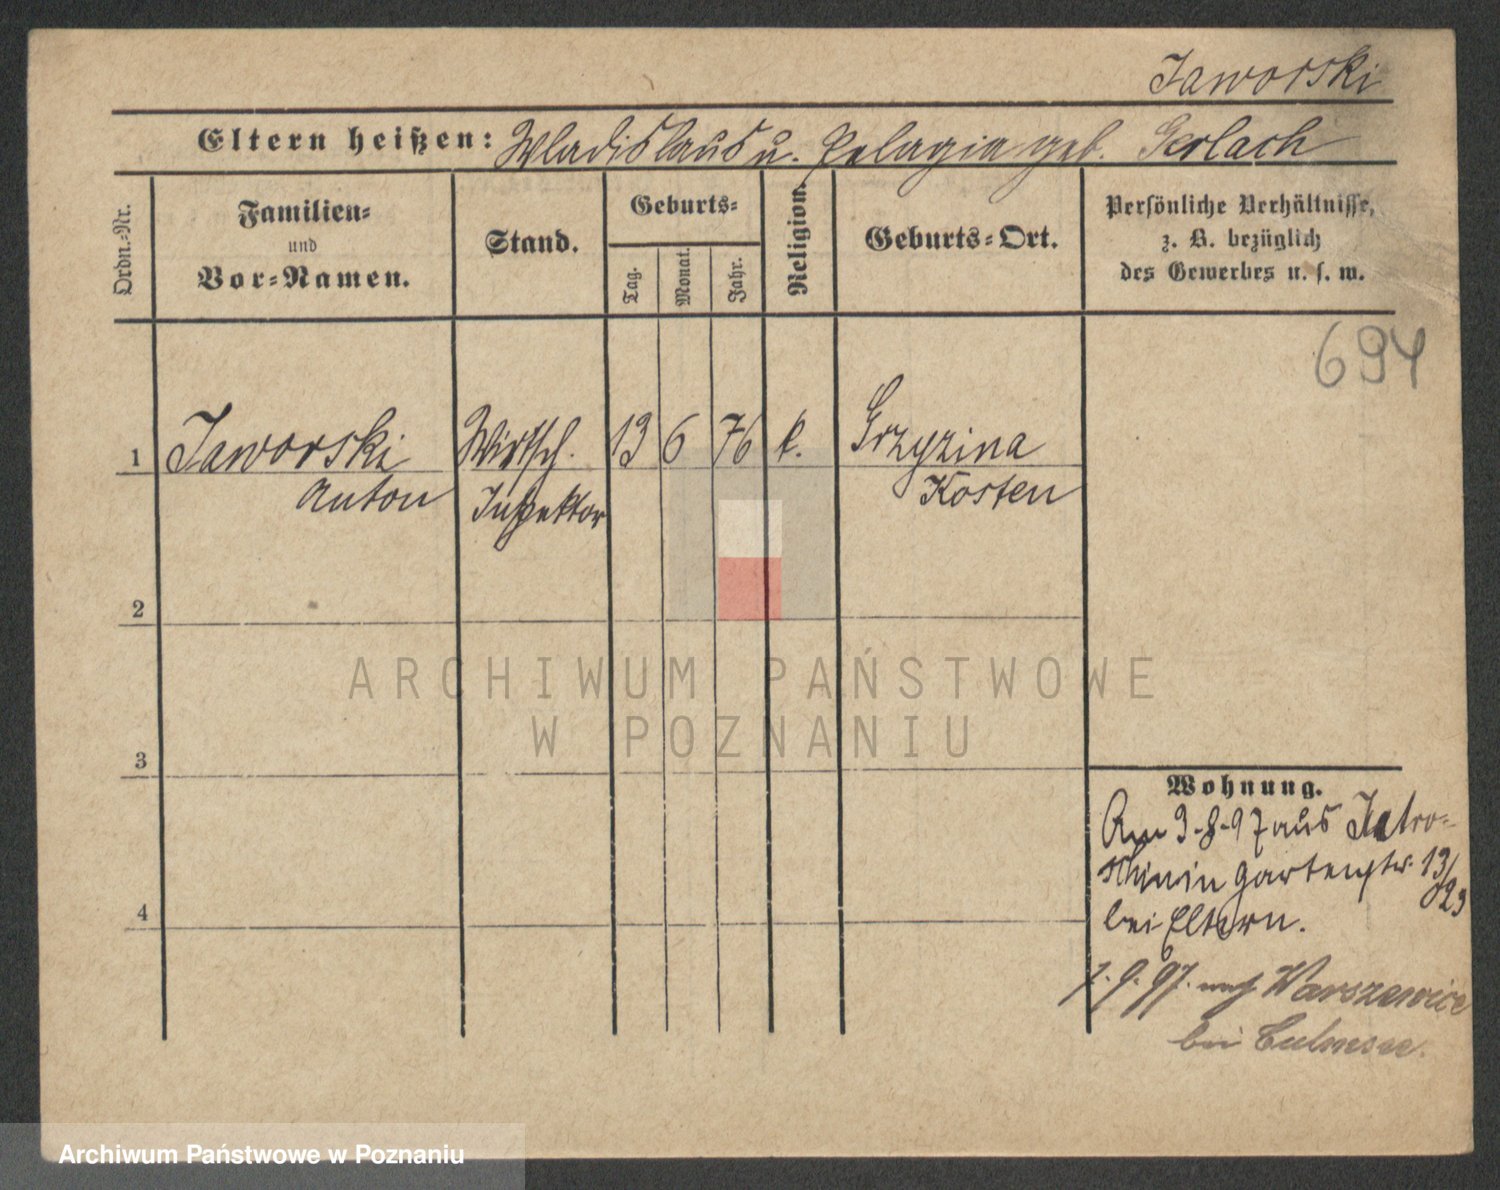 Jaworski
Eltern heißen: Wladislaus u. Pelagia geb. Gerlach
Ordn.-Nr.
Familien-
und
Vor-Namen.
Stand.
Geburts-
Tag.
Monat.
Jahr.
Religion.
Geburts-Ort.
Persönliche Verhältnisse,
z. B. bezüglich
des Gewerbes u. s. w.
694
1 Jaworski Wirtsch. 13 6 76 k. Grzyzina
Anton Inspektor Kosten
2
ARCHIWUM PAŃSTWOWE
W POZNANIU
3
Wohnung.
Am 3.8.97 aus Jutro-
schin in Gartenstr. 13/
23
bei Eltern.
4
1.9.97. nach Warszewice
bei Culmsee.
Archiwum Państwowe w Poznaniu